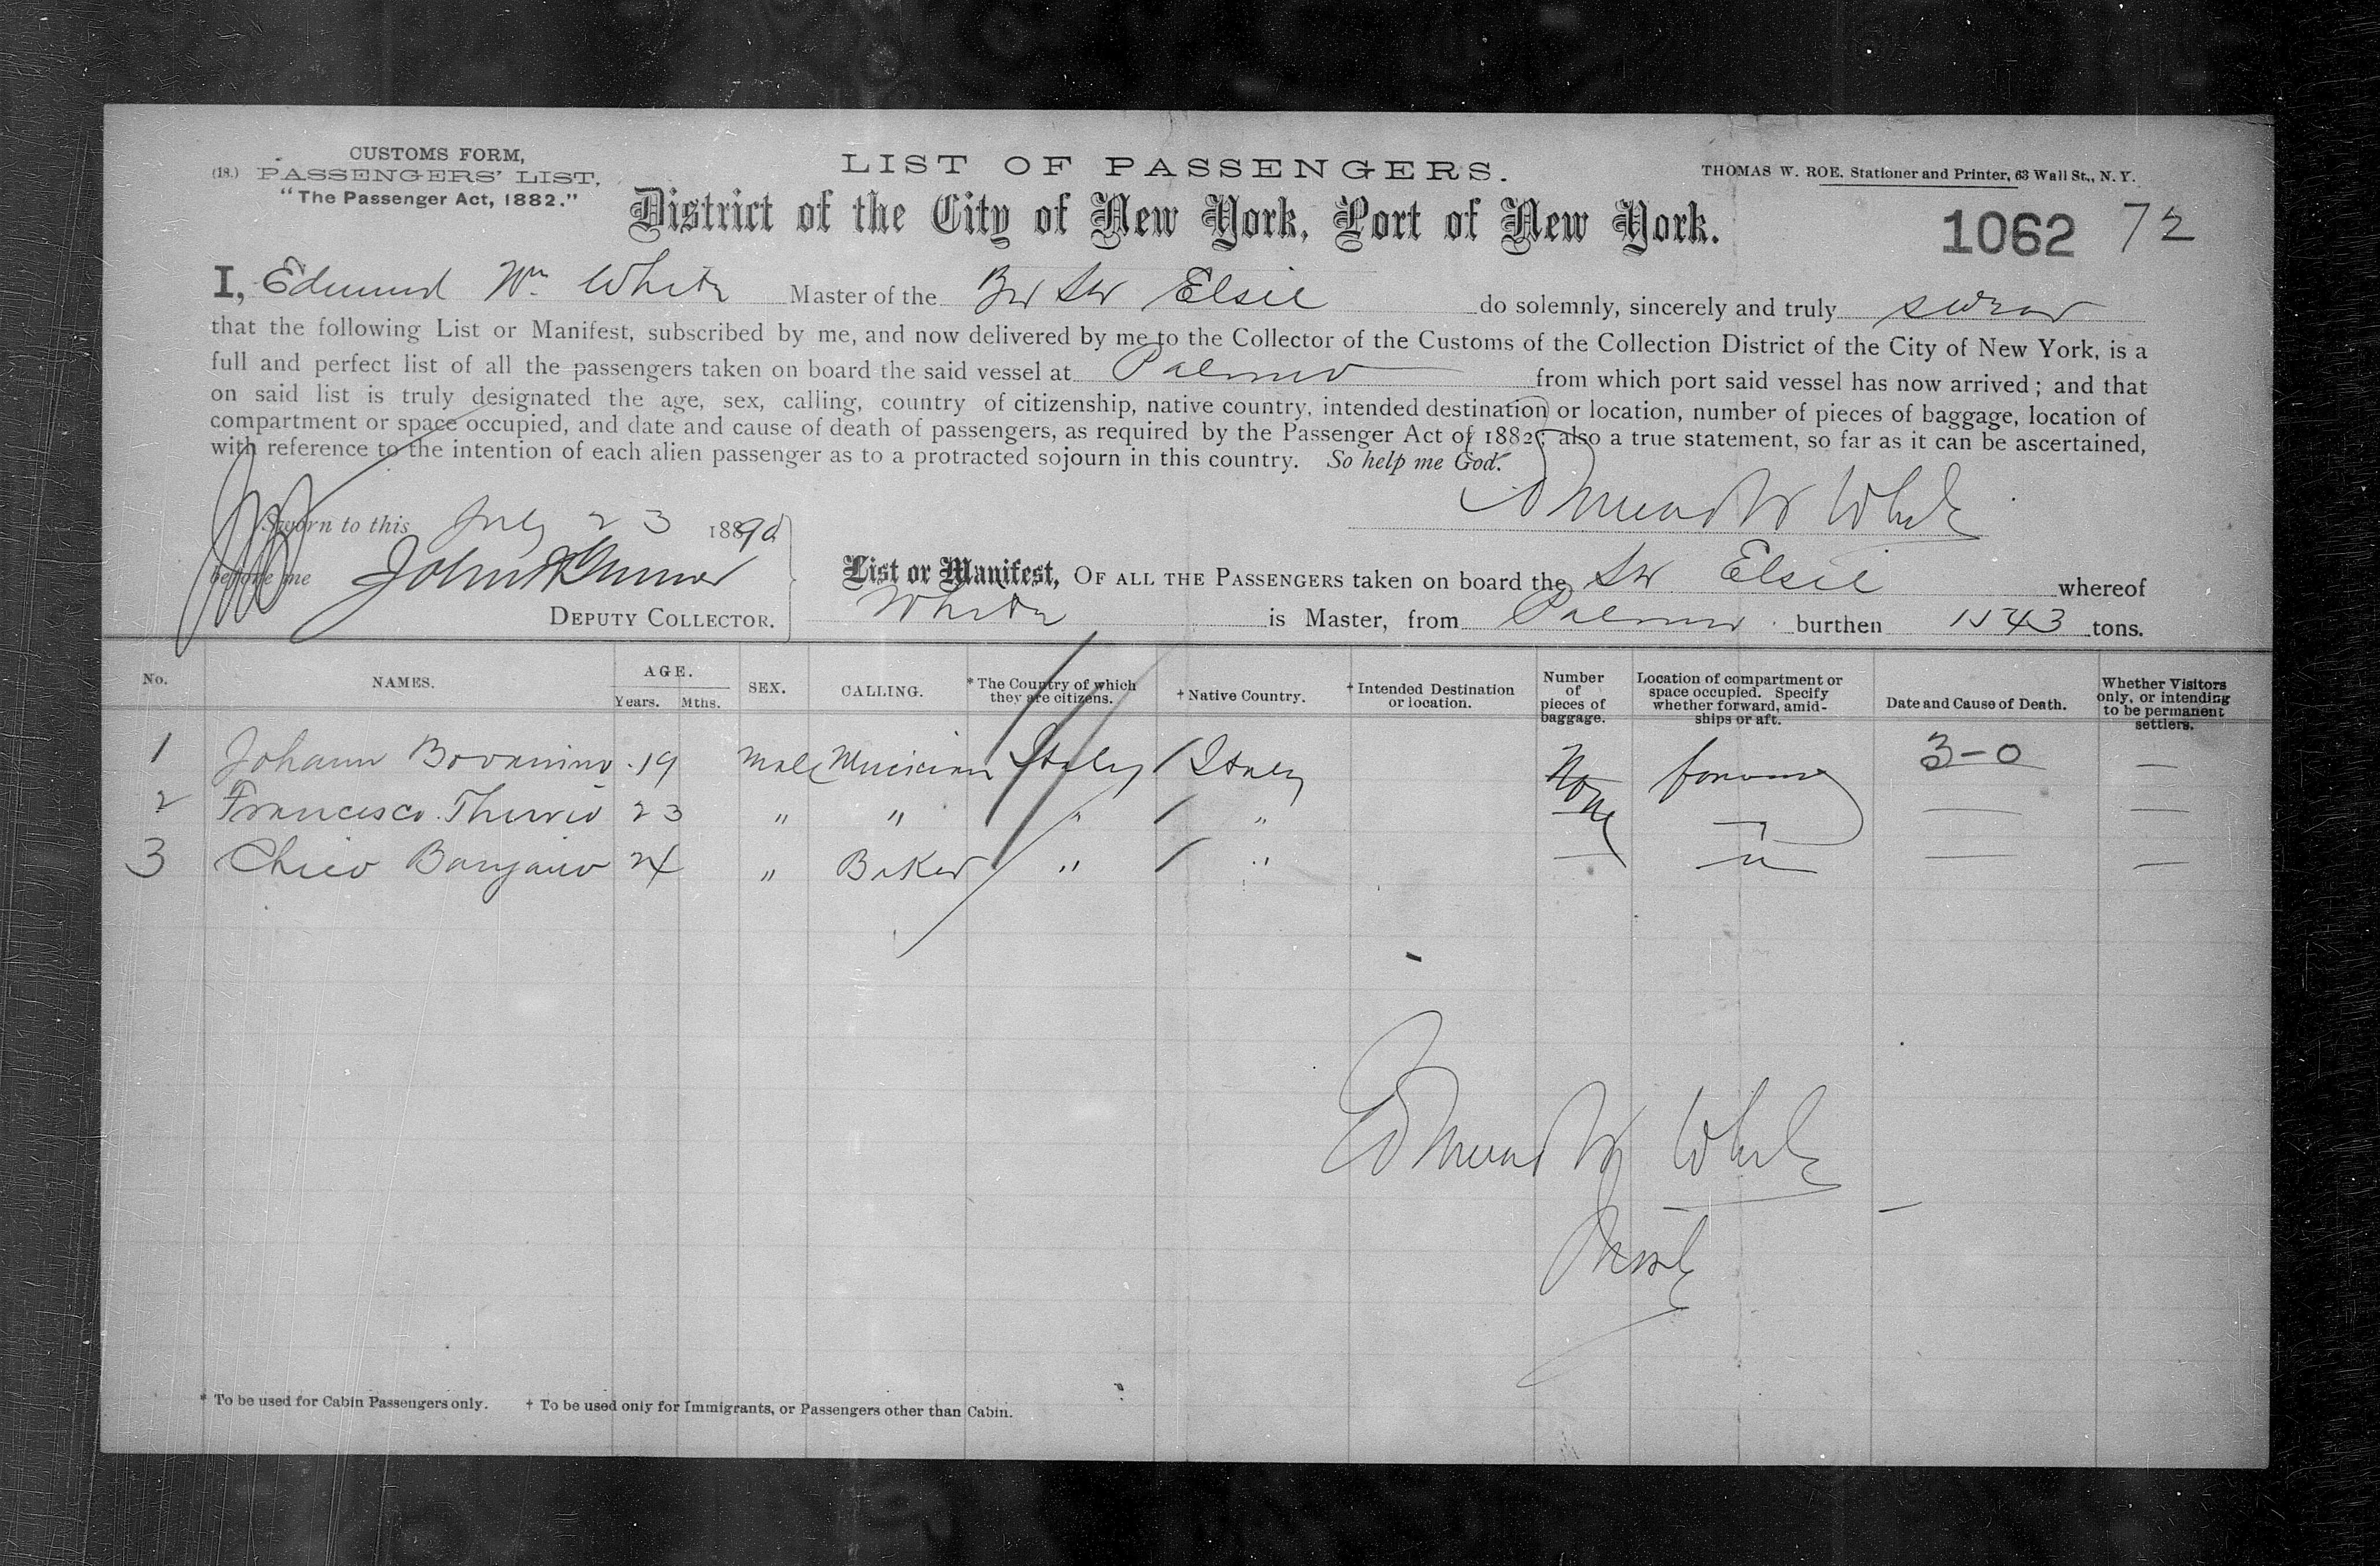 CUSTOMS FORM,
(18.) PASSENGERS' LIST,
"The Passenger Act, 1882."
LIST OF PASSENGERS.
THOMAS W. ROE. Stationer and Printer, 63 Wall St., N. Y.
District of the City of New York, Port of New York.
1062 72
I, Edmund Wm White Master of the Elsie do solemnly, sincerely and truly swear
that the following List or Manifest, subscribed by me, and now delivered by me to the Collector of the Customs of the Collection District of the City of New York, is a
full and perfect list of all the passengers taken on board the said vessel at Palermo from which port said vessel has now arrived; and that
on said list is truly designated the age, sex, calling, country of citizenship, native country, intended destination or location, number of pieces of baggage, location of
compartment or space occupied, and date and cause of death of passengers, as required by the Passenger Act of 1882; also a true statement, so far as it can be ascertained,
with reference to the intention of each alien passenger as to a protracted sojourn in this country. So help me God.
Edmund W White
Sworn to this July 23 1890
before me John
DEPUTY COLLECTOR.
List or Manifest, OF ALL THE PASSENGERS taken on board the Elsie whereof
White is Master, from Palermo burthen 1543 tons.
No. NAMES. AGE. Years. Mths. SEX. CALLING. * The Country of which they are citizens. † Native Country. † Intended Destination or location. Number of pieces of baggage. Location of compartment or space occupied. Specify whether forward, amidships or aft. Date and Cause of Death. Whether Visitors only, or intending to be permanent settlers.
1 Johann 19 Male Musician Italy / Italy None forward 3-0 —
2 Francesco 23 " " " / " — —
3 Chico 24 " Baker " / " — " — —
Edmund W White
* To be used for Cabin Passengers only. † To be used only for Immigrants, or Passengers other than Cabin.